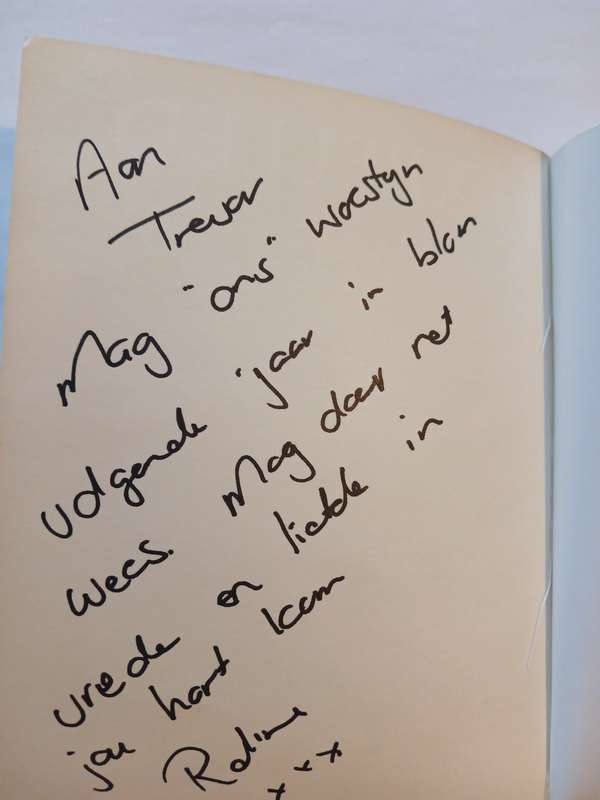 Aan
Trevor
Mag "ons" woestyn
volgende jaar in blom
wees. Mag daar net
vrede en liefde in
jou hart kom
xxx